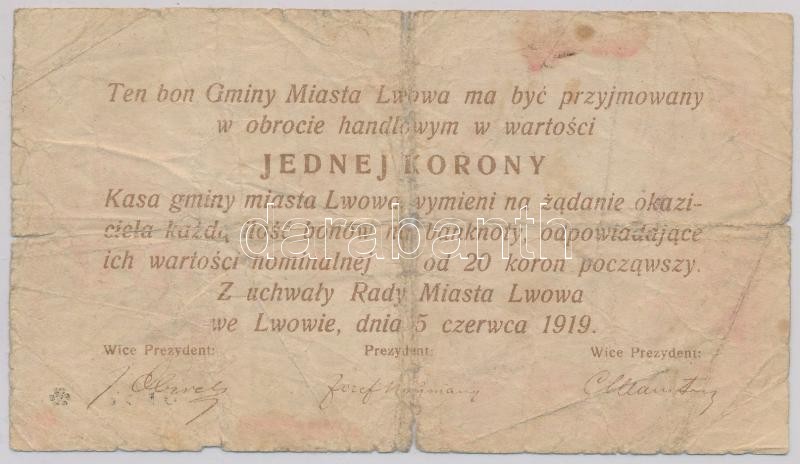 Ten bon Gminy Miasta Lwowa ma być przyjmowany
w obrocie handlowym w wartości
JEDNEJ KORONY
Kasa gminy miasta Lwowa wymieni na żądanie okazi-
ciela każdą ilość bonów na banknoty, odpowiadające
ich wartości nominalnej od 20 koron począwszy.
Z uchwały Rady Miasta Lwowa
we Lwowie, dnia 5 czerwca 1919.
Wice Prezydent: Prezydent: Wice Prezydent:
Józef
darabanth